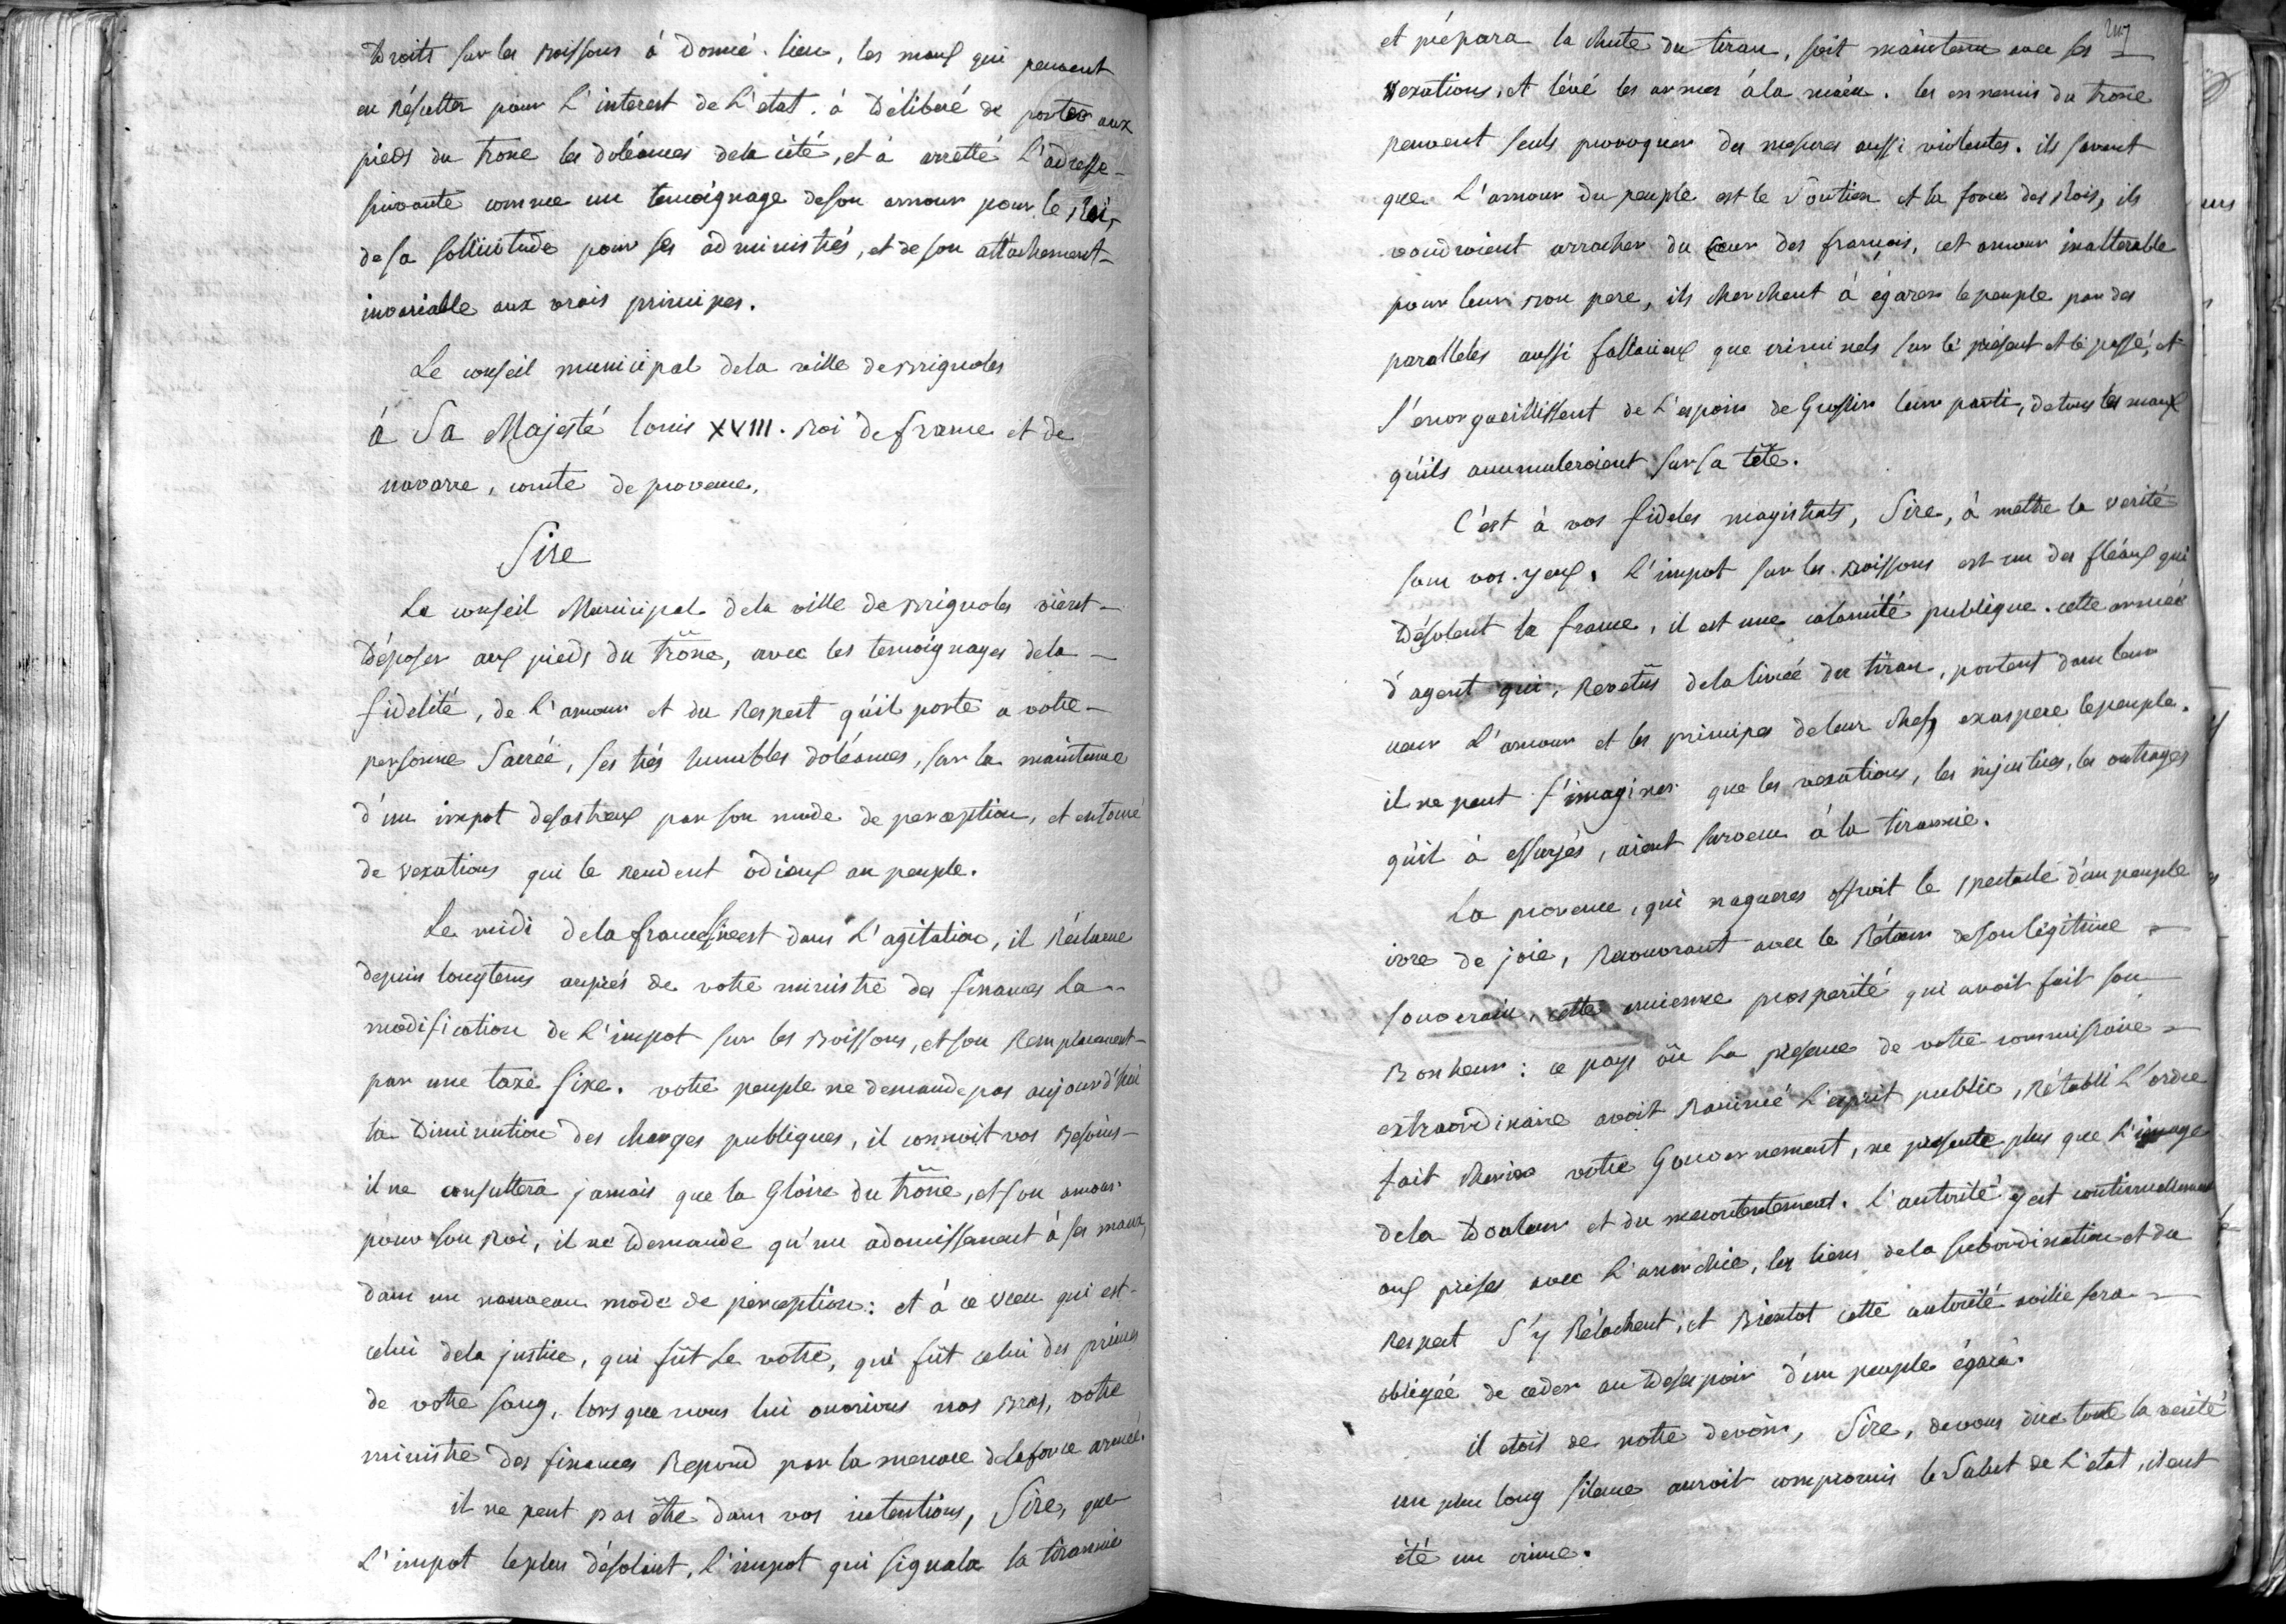 Droits sur les Boissons à donné lieu, les maux qui peuvent
en Résulter pour L'interest de L'etat. à Délibéré de porter aux
pieds du trone les doléances dela cité, et à arretté L'adresse
suivante comme un temoignage deson amour pour le Roi,
desa sollicitude pour ses administrés, et de son attachement
invariable aux vrais principes.
Le conseil municipal dela ville de Brignoles
à Sa Majesté louis XVIII. Roi de france et de
navarre, comte de provence,
Sire
Le conseil Municipal dela ville de Brignoles vient
Déposer aux pieds du trône, avec les temoignages dela
fidelité, de L'amour et du Respect qu'il porte a votre
personne Sacrée, ses trés humbles doléances, sur la maintenue
d'un impot desastreux par son mode de perception, et entouré
de vexations qui le rendent odieux au peuple.
Le midi dela france Sire est dans L'agitation, il Réclame
depuis longtems auprés de votre ministre des finances La
modification de L'impot sur les Boissons, et son Remplacement
par une taxe fixe. votre peuple ne demande pas aujourd'hui
la Diminution des charges publiques, il connoit vos Besoins
il ne consultera jamais que la Gloire du trône, et son amour
pour son Roi, il ne Demande qu'un adoucissement à ses maux,
dans un nouveau mode de perception: et à ce vœu qui est
celui dela justice, qui fût Le votre, qui fût celui des princes
de votre sang, lors que nous lui ouvrions nos Bras, votre
ministre des finances Repond par la menace dela force armée.
il ne peut pas être dans vos intentions, Sire, que
L'impot le plus désolant, L'impot qui signala la tirannie
et prépara la chute du tiran, soit maintenu avec ses
vexations, et levé les armes à la main. les ennemis du trone
peuvent seuls provoquer des mesures aussi violentes. ils savent
que L'amour du peuple est le Soutien et la force des Rois, ils
voudroient arracher du Cœur des français, cet amour inalterable
pour leur Bon pere, ils cherchent à égarer le peuple par des
paralleles aussi fallacieux que criminels sur le présent et le passé, et
s'enorgueillissent de L'espoir de Grossir leur parti, de tous les maux
qu'ils accumuleroient sur sa tête.
C'est à vos fideles magistrats, Sire, à mettre la verité
sous vos yeux. L'impot sur les Boissons est un des fléaux qui
Désolent la france, il est une calamité publique. cette armée
d'agent qui, Revetûs dela livrée du tiran, portent dans leur
cœur L'amour et les principes de leur chef, exaspere le peuple.
il ne peut s'imaginer que les vexations, les injustices, les outrages
qu'il à essuyés, aient survecu à la tirannie.
La provence, qui nagueres offroit le spectacle d'un peuple
ivre de joie, Recouvrant avec le Rétour de son légitime
souverain, cette ancienne prosperité qui avoit fait son
Bonheur: ce pays où la presence de votre commissaire
extraordinaire avoit Ranimé L'esprit public, Rétabli L'ordre
fait cherir votre Gouvernement, ne presente plus que L'image
dela Douleur et du mecontentement. l'autorité y est continuellement
aux prises avec L'anarchie, les liens dela subordination et du
Respect S'y Rélachent, et Bientot cette autorité avilie sera
obligée de ceder au Desespoir d'un peuple égaré.
il etoit de notre devoir, Sire, de vous dire toute la verité
un plus long silence auroit compromis le Salut de L'état, il eut
été un crime.